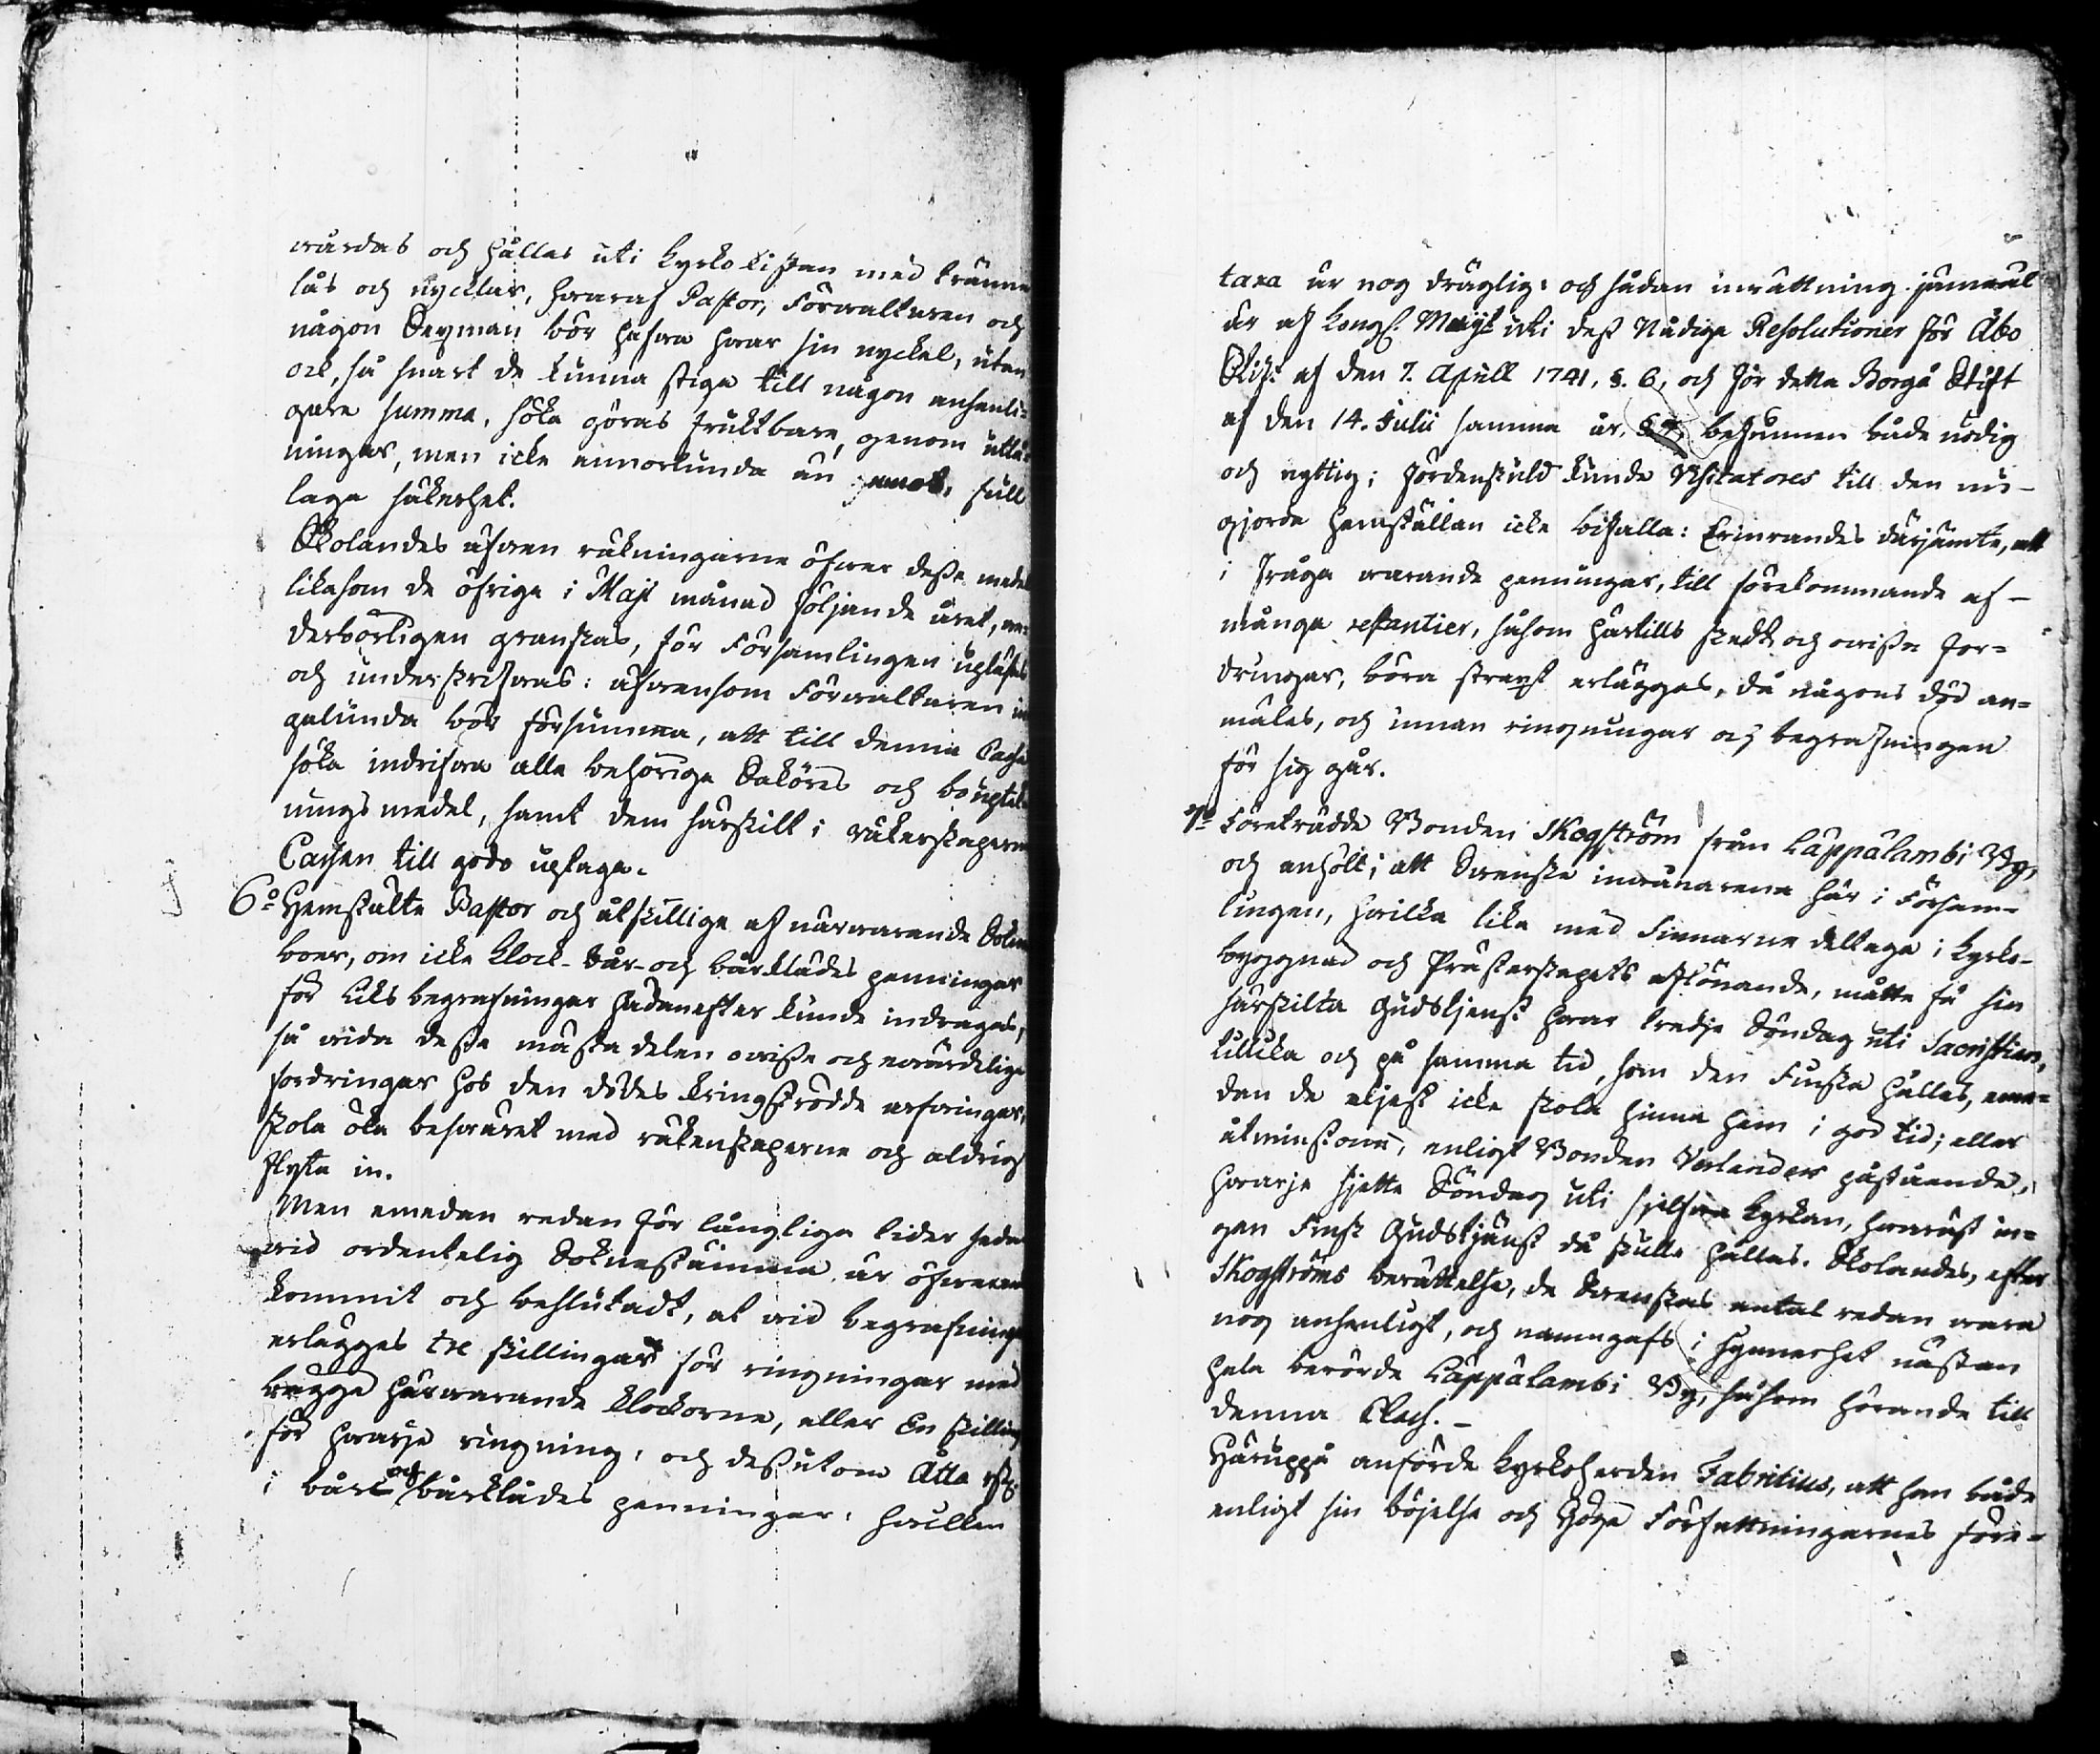 wårdas och hållas uti Kyrko kistan med tvänne
lås och nycklar, hwaraf Pastor, Förwaltaren och
någon Sexman bör hafwa hwar sin nyckel, utan
ock, så snart de kunna stiga till någon ansenli=
gare summa, söka göras fruktbare, genom utlå=
ningar, men icke annorlunda än emot, full
laga säkerhet.
Skolandes äfwen räkningarne öfwer dessa medel
likasom de öfriga i Maji månad följande året, we=
derbörligen granskas, för Församlingen upläsas
och underskrifwas: äfwensom Förwaltaren in=
galunda bör försumma, att till denna Cassa
söka indrifwa alla behöriga Sakörs och bouptek=
nings medel, samt dem särskilt i räkenskaperna
Cassan till godo uptaga.
6:o Hemstälte Pastor och åtskillige af närwarande Sokne
boer, om icke Klock- Bår- och bårklädes penningar
för Liks begrafningar hädanefter kunde indragas,
så wida dessa mästa delen owissa och owärdelige
fordringar hos den dödes kringströdde arfwingar,
skola öka beswäret med räkenskaperne och aldrig
flyta in.
Men emedan redan för långliga tider sedan
wid ordentelig Sokne stämma är öfwerens
kommit och beslutadt, at wid begrafningar
erlägges tre skillingar för ringningar med
bägge härwarande klockorne, eller En skilling
för hwarje ringning, och dessutom Åtta rst:
i bår och bårklädes penningar: hwilken
taxa är nog dräglig: och sådan inrättning jämwäl
är af Kongl. Maijt uti dess Nådiga Resolutioner för Åbo
Stift af den 7. Aprill 1741, §. 6, och för detta Borgå Stift
af den 14. Julii samma år, § 7, befunnen både nödig
och nyttig; fördenskuld kunde Visitatores till den nu-
gjorda hemställan icke bifalla: Erinrandes därjämte, att
i fråga warande penningar, till förekommande af-
många restantier, såsom härtills skedt och owissa for=
dringar, böra strapt erläggas, då någons död an=
mäles, och innan ringningar och begrafningen
för sig går.
7:o Företrädde Bonden Skogström från Läppälambi By,
och anhölt; att Swenska inwånarena här i Försam=
lingen, hwilka lika med Finnarne deltaga i kyrko-
byggnad och Prästerskapets aflönande, måtte få sin
särskilta Gudstjenst hwar tredje Söndag uti Sacristian,
lillika och på samma tid, som den Finska hålles, eme=
dan de eljest icke skola hinna hem i god tid; eller
åtminstone, enligt Bonden Verlanders påstående,
hwarje sjette Söndag uti sjelfwa Kyrkan, hwaräst in=
gen Finsk Gudstjänst då skulle hållas. Skolandes, efter
Skogströms berättelse, de Swenskas antal redan wara
nog ansenligt, och namngafs i synnerhet nästan
hela berörde Läppälambi By, såsom hörande till
denna Class. -
Häruppå anförde Kyrkoherden Fabritius, att han både
enligt sin böjelse och Höga Författningarnes före=